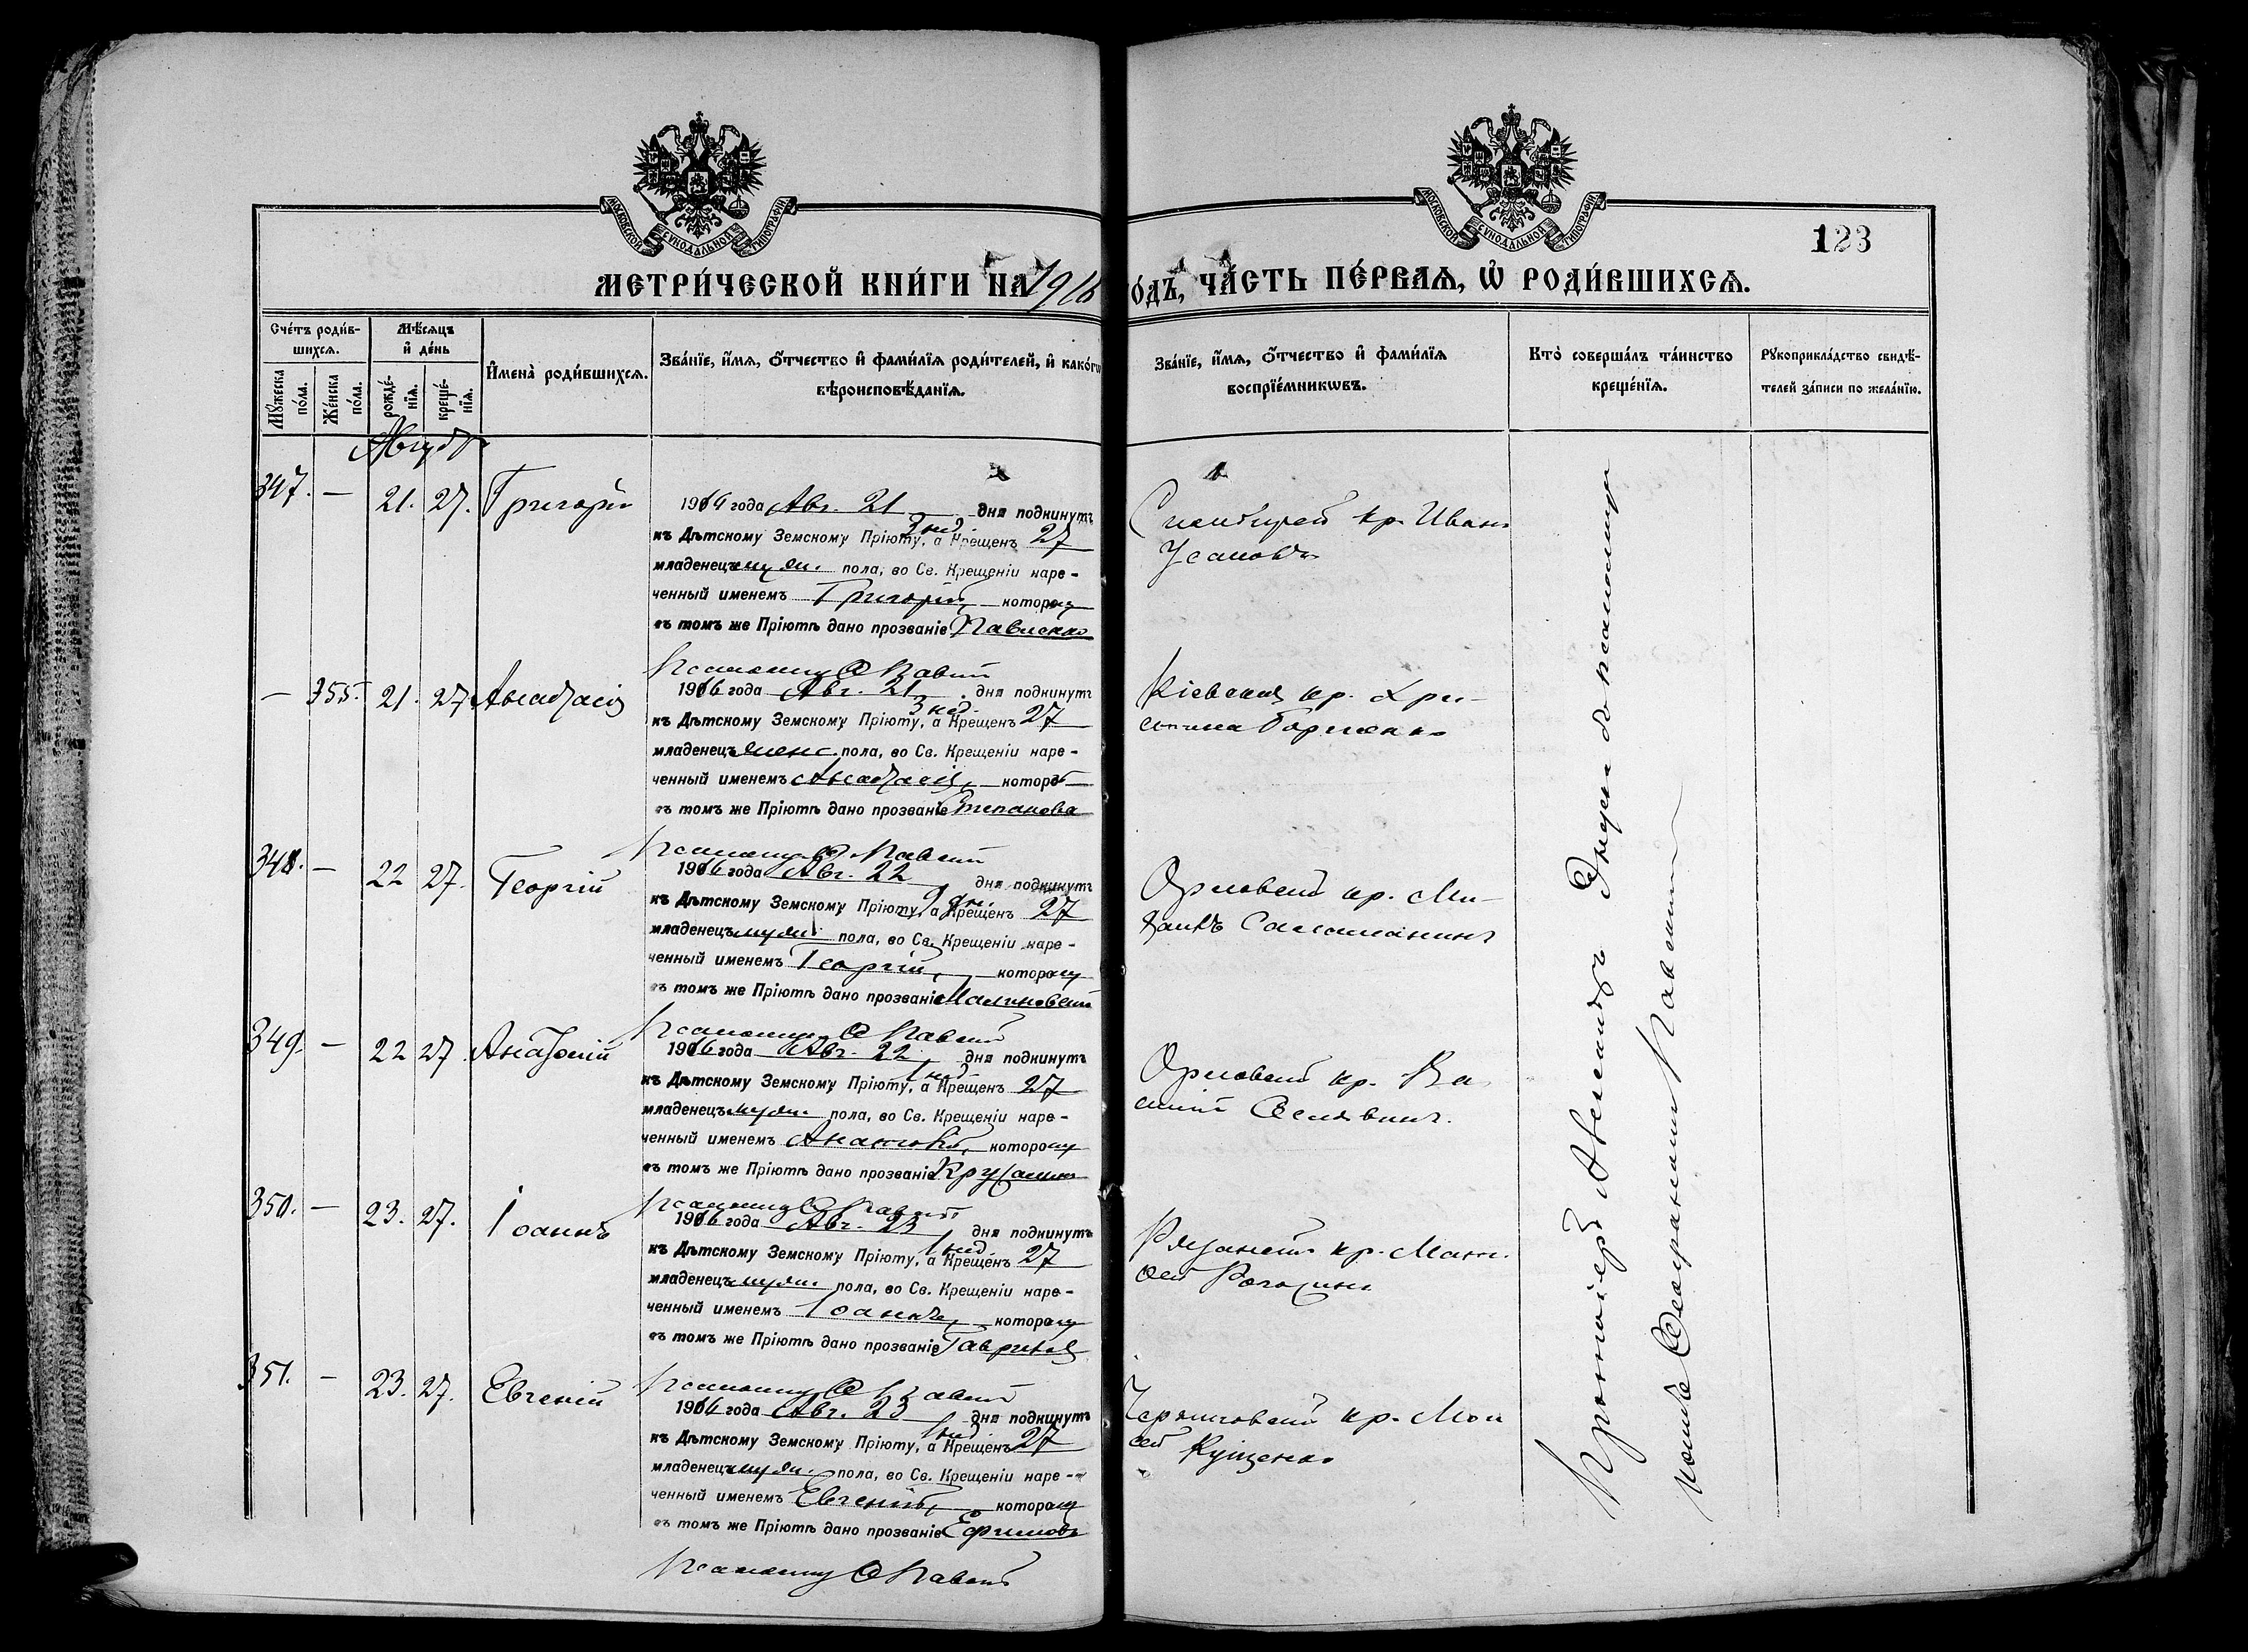 МОСКОВСКОЙ СѴНОДАЛЬНОЙ ТИПОГРАФІИ
МОСКОВСКОЙ СѴНОДАЛЬНОЙ ТИПОГРАФІИ
123
МЕТРИ́ЧЕСКОЙ КНИ́ГИ НА 1916
О́ДЪ, ЧА́СТЬ ПЕ́РВАѦ, Ѡ҆ РОДИ́ВШИХСѦ.
Сче́тъ роди́в-
шихсѧ.
Мꙋ́жеска
по́ла.
Же́нска
по́ла.
Мѣ́сѧцъ
и҆ де́нь
рожде́-
нїѧ.
креще́-
нїѧ.
И҆мена̀ роди́вшихсѧ.
Зва́нїе, и҆́мѧ, ѻ҆́тчество и҆ фами́лїѧ роди́телей, и҆ како́гѡ
вѣроисповѣ́данїѧ.
Зва́нїе, и҆́мѧ, ѻ҆́тчество и҆ фами́лїѧ
воспрїе́мникѡвъ.
Кто̀ соверша́лъ та́инство
креще́нїѧ.
Рꙋкоприкла́дство свидѣ́-
телей за́писи по жела́нїю.
Августъ
347. — 21. 27. Григорій
1916 года Авг. 21 дня подкинутъ
3 нед.
къ Дѣтскому Земскому Пріюту, а Крещенъ 27
младенецъ муж. пола, во Св. Крещеніи наре-
ченный именемъ Григорій, котором
въ томъ же Пріютѣ дано прозваніе Павленко
кр. Иванъ
Усановъ
— 355. 21. 27. Анастасія
1916 года Авг. 21 дня подкинутъ
3 нед.
къ Дѣтскому Земскому Пріюту, а Крещенъ 27
младенецъ женс. пола, во Св. Крещеніи наре-
ченный именемъ Анастасія, котор
въ томъ же Пріютѣ дано прозваніе Степанова
Кіевская кр. Хри-
стина
348. — 22 27. Георгій
1916 года Авг. 22 дня подкинутъ
дн.
къ Дѣтскому Земскому Пріюту, а Крещенъ 27
младенецъ муж. пола, во Св. Крещеніи наре-
ченный именемъ Георгій, котором
въ томъ же Пріютѣ дано прозваніе Малиновскій
Орловскій кр. Ми-
хаилъ
349. — 22 27. Анатолій
1916 года Авг. 22 дня подкинутъ
1 нед.
къ Дѣтскому Земскому Пріюту, а Крещенъ 27
младенецъ муж. пола, во Св. Крещеніи наре-
ченный именемъ Анатолій, котором
въ томъ же Пріютѣ дано прозваніе
Орловскій кр. Ва
силій Селявинъ.
350. — 23. 27. Іоаннъ
1916 года Авг. 23 дня подкинутъ
1 нед.
къ Дѣтскому Земскому Пріюту, а Крещенъ 27
младенецъ муж. пола, во Св. Крещеніи наре-
ченный именемъ Іоаннъ, котором
въ томъ же Пріютѣ дано прозваніе
Рязанскій кр.
Рогозинъ
351. — 23. 27. Евгеній
1916 года Авг. 23 дня подкинутъ
1 нед.
къ Дѣтскому Земскому Пріюту, а Крещенъ 27
младенецъ муж. пола, во Св. Крещеніи наре-
ченный именемъ Евгеній, котором
въ томъ же Пріютѣ дано прозваніе Ефимовъ
Черниговскій кр. Мои
сей Кущенко
Протоіерей Александръ съ псаломщи
комъ Павскимъ